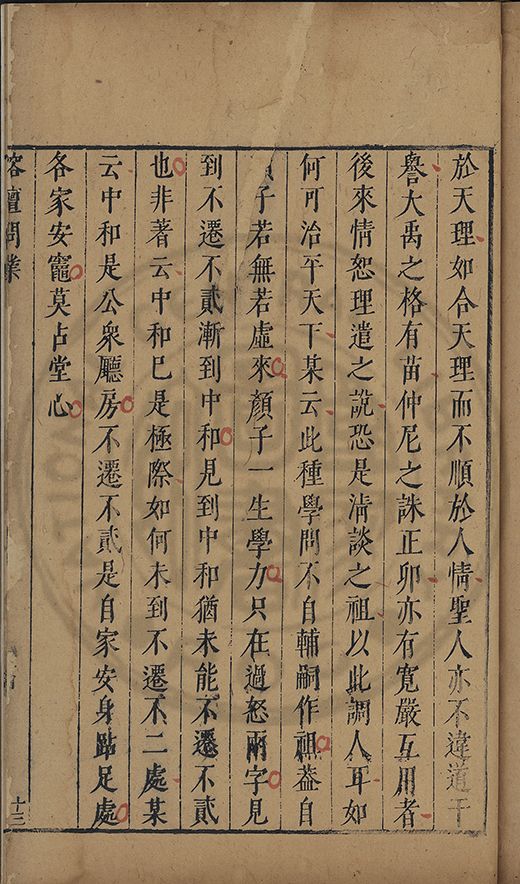 於天理如合天理而不順於人情聖人亦不違道干
譽大禹之格有苗仲尼之誅正卯亦有寬嚴互用者
後來情恕理遣之說恐是淸談之祖以此調人耳如
何可治平天下某云此種學問不自輔嗣作祖葢自
顏子若無若虛來顏子一生學力只在過怒兩字見
到不遷不貳漸到中和見到中和猶未能不遷不貳
也非著云中和已是極際如何未到不遷不二處某
云中和是公衆廳房不遷不貳是自家安身跕足處
各家安竈莫占堂心
榕壇問業
十三